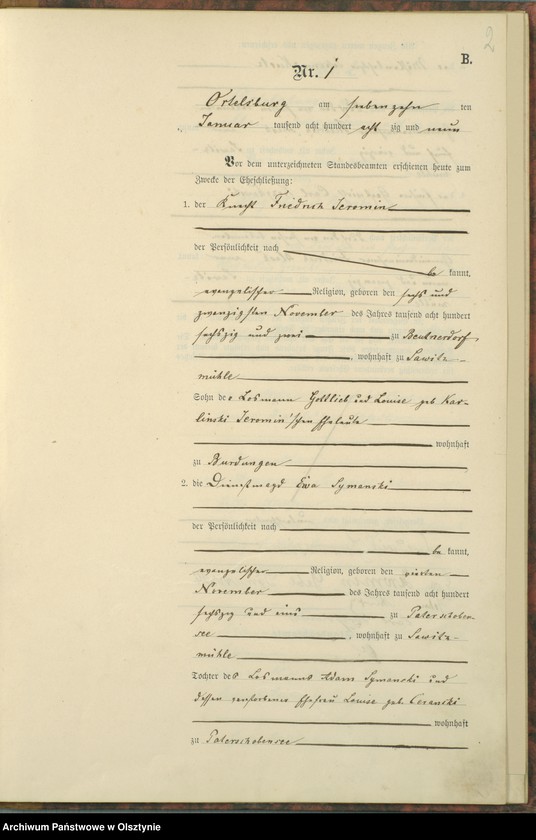 2
B.
Nr. 1
Ortelsburg am siebenzehn ten
Januar tausend acht hundert acht zig und neun
Vor dem unterzeichneten Standesbeamten erschienen heute zum
Zwecke der Eheschließung:
1. der Knecht Friedrich Jeromin
der Persönlichkeit nach
be kannt,
evangelischer Religion, geboren den sechs und
zwanzigsten November des Jahres tausend acht hundert
sechszig und zwei zu Beutnerdorf
, wohnhaft zu Sawitz-
mühle
Sohn des Losmann Gottlieb und Louise geb Kar-
linski Jeromin'schen Eheleute
wohnhaft
zu Burdungen
2. die Dienstmagd Ewa Symanski
der Persönlichkeit nach
be kannt,
evangelischer Religion, geboren den vierten
November des Jahres tausend acht hundert
sechszig und eins zu Paterschoben-
see , wohnhaft zu Sawitz-
mühle
Tochter des Losmanns Adam Symanski und
dessen verstorbenen Ehefrau Louise geb
wohnhaft
zu Paterschobensee
Archiwum Państwowe w Olsztynie